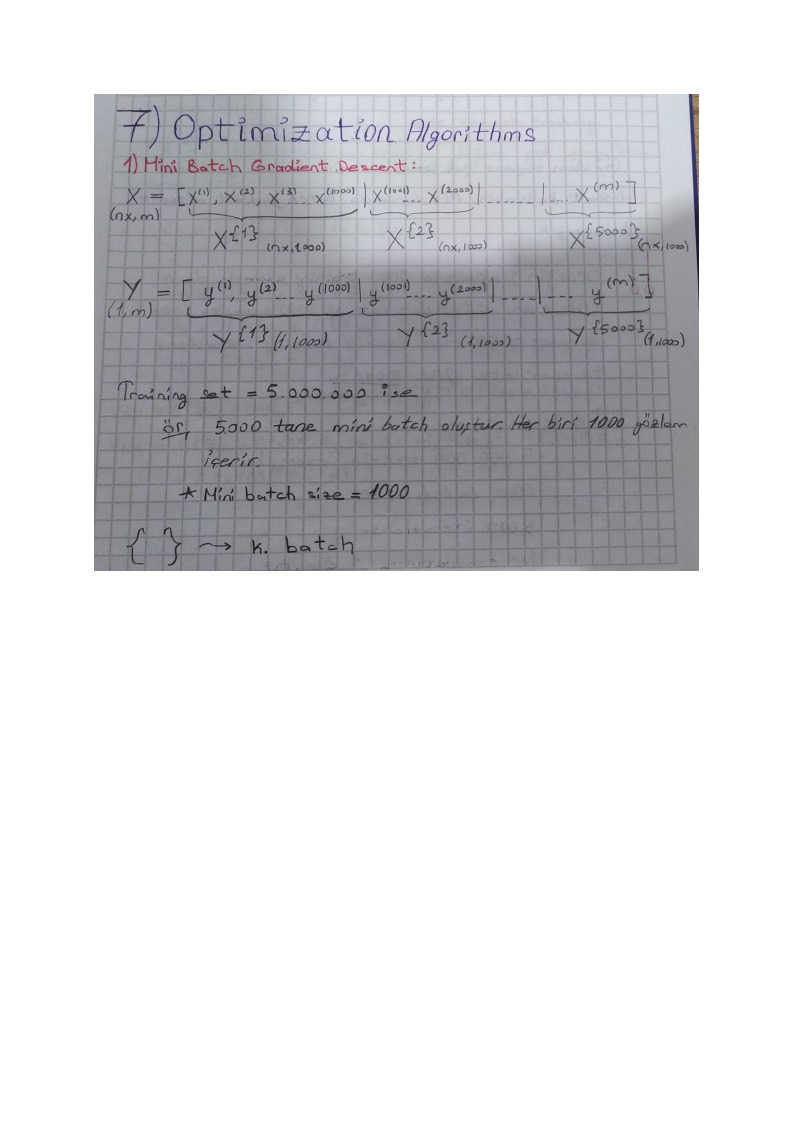 7) Optimization Algorithms
1) Mini Batch Gradient Descent:
X = [x^(1), x^(2), x^(3) ... x^(1000) | x^(1001) ... x^(2000) | ....... | ... x^(m)]
(nx, m)
X^{1} (nx, 1000) X^{2} (nx, 1000) X^{5000} (nx, 1000)
Y = [y^(1), y^(2) ... y^(1000) | y^(1001) .... y^(2000) | ..... | .... y^(m)]
(1, m)
Y^{1} (1, 1000) Y^{2} (1, 1000) Y^{5000} (1, 1000)
Training set = 5.000.000 ise
ör, 5.000 tane mini batch oluştur. Her biri 1000 gözlem
içerir.
* Mini batch size = 1000
{ } → k. batch